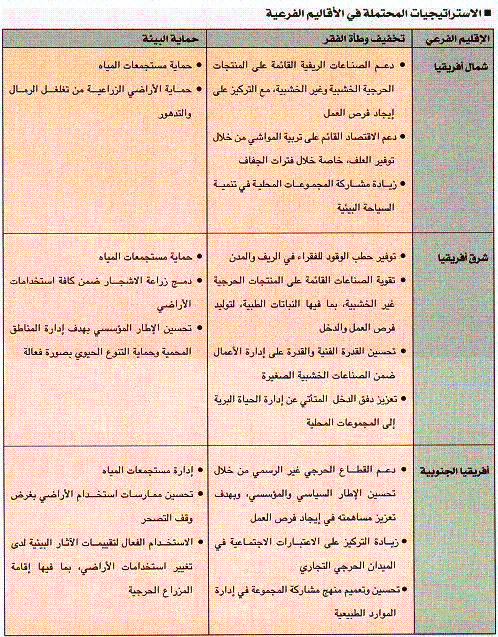 ■ الاستراتيجيات المحتملة في الأقاليم الفرعية
الإقليم الفرعي
تخفيف وطأة الفقر
حماية البيئة
شمال أفريقيا
● دعم الصناعات الريفية القائمة على المنتجات
الحرجية الخشبية وغير الخشبية، مع التركيز على
إيجاد فرص العمل
● دعم الاقتصاد القائم على تربية المواشي من خلال
توفير العلف، خاصة خلال فترات الجفاف
● زيادة مشاركة المجموعات المحلية في تنمية
السياحة البيئية
● حماية مستجمعات المياه
● حماية الأراضي الزراعية من تغلغل الرمال
والتدهور
شرق أفريقيا
● توفير حطب الوقود للفقراء في الريف والمدن
● تقوية الصناعات القائمة على المنتجات الحرجية
غير الخشبية، بما فيها النباتات الطبية، لتوليد
فرص العمل والدخل
● تحسين القدرة الفنية والقدرة على إدارة الأعمال
ضمن الصناعات الخشبية الصغيرة
● تعزيز دفق الدخل المتأتي عن إدارة الحياة البرية
إلى المجموعات المحلية
● حماية مستجمعات المياه
● دمج زراعة الاشجار ضمن كافة استخدامات
الأراضي
● تحسين الإطار المؤسسي بهدف إدارة المناطق
المحمية وحماية التنوع الحيوي بصورة فعالة
أفريقيا الجنوبية
● دعم القطاع الحرجي غير الرسمي من خلال
تحسين الإطار السياسي والمؤسسي، وبهدف
تعزيز مساهمته في إيجاد فرص العمل
● زيادة التركيز على الاعتبارات الاجتماعية في
الميدان الحرجي التجاري
● تحسين وتعميم منهج مشاركة المجموعة في إدارة
الموارد الطبيعية
● إدارة مستجمعات المياه
● تحسين ممارسات استخدام الأراضي بغرض
وقف التصحر
● الاستخدام الفعال لتقييمات الآثار البيئية لدى
تغيير استخدامات الأراضي، بما فيها إقامة
المزارع الحرجية